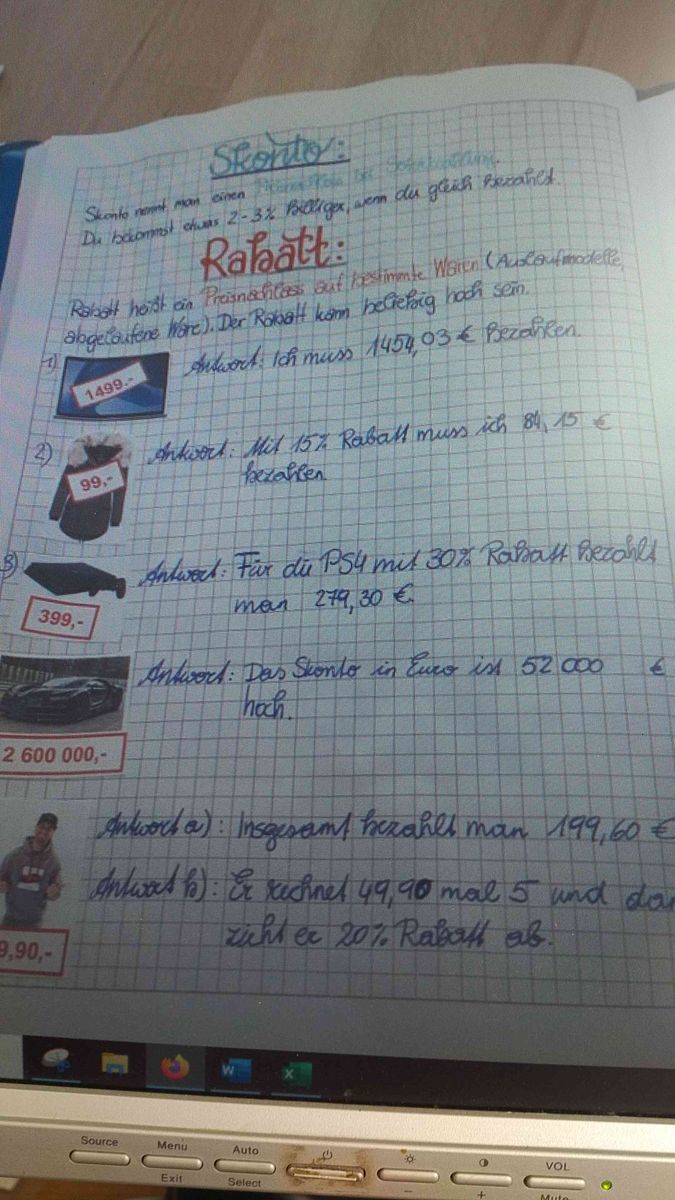 Skonto:
Skonto nennt man einen Preisnachlass bei Sofortzahlung.
Du bekommst etwas 2-3% Billiger, wenn du gleich Bezahlst.
Rabatt:
Rabatt heißt ein Preisnachlass auf bestimmte Waren (Auslaufmodelle,
abgelaufene Ware). Der Rabatt kann beliebig hoch sein.
1) 1499.- Antwort: Ich muss 1454,03 € Bezahlen.
2) 99,- Antwort: Mit 15% Rabatt muss ich 84,15 €
bezahlen
3) Antwort: Für die PS4 mit 30% Rabatt Bezahlt
399,- man 279,30 €
Antwort: Das Skonto in Euro ist 52 000 €
hoch.
2 600 000,-
Antwort a): Insgesamt bezahlt man 199,60 €
Antwort b): Er rechnet 49,90 mal 5 und dan
zieht er 20% Rabatt ab.
9,90,-
Source Menu Auto VOL
Exit Select - + Mute